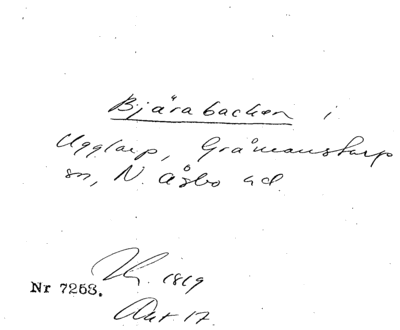 Bjärabacken i
Ugglarp, Gråmanstorps
sn, N. Åsbo hd.
1819
Nr 7253.
Akt. 17